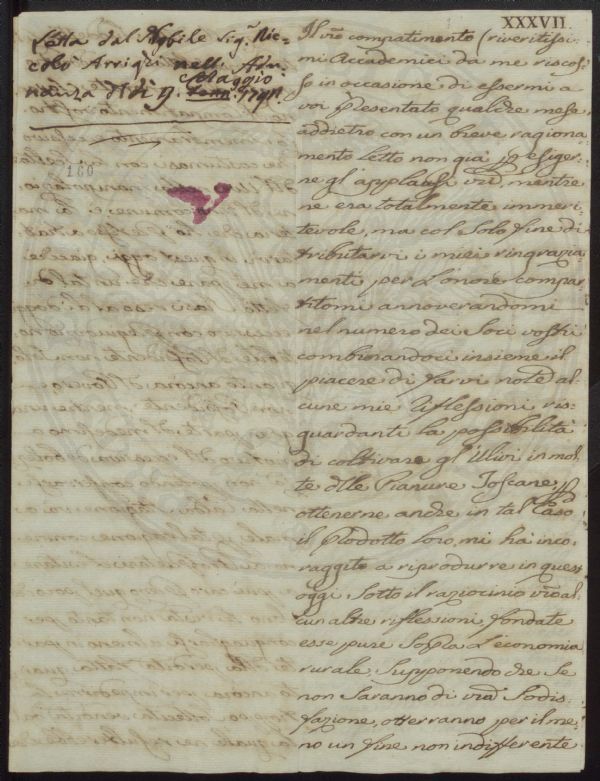 XXXVII.
Letta dal Nobile Sig.r Nic-
colò Arrigi nell' Adu-
Maggio
nanza del dì 9. Genn. 1791.
160
Il vro compatimento (riveritissi-
mi Accademici da me riscos-
so in occasione di essermi a
voi presentato qualche mese
addietro con un breve ragiona-
mento letto non già p esiger-
ne gl'applausi vri, mentre
ne era totalmente immeri-
tevole, ma col solo fine di
tributarvi i miei ringrazia-
menti per l'onore compar-
titomi annoverandomi
nel numero dei Soci vostri
combinandoci insieme il
piacere di farvi note al-
cune mie riflessioni ris-
guardanti la possibilità
di coltivare gl'Ulivi in mol-
te delle Pianure Toscane, p
ottenerne anche in tal Caso
il Prodotto loro, mi ha inco-
raggito a riprodurre in quest'
oggi sotto il raziocinio vro al-
cun altre riflessioni fondate
esse pure sopra l'economia
rurale, supponendo che se
non saranno di vra sodis-
fazione, otterranno per il me-
no un fine non indifferente